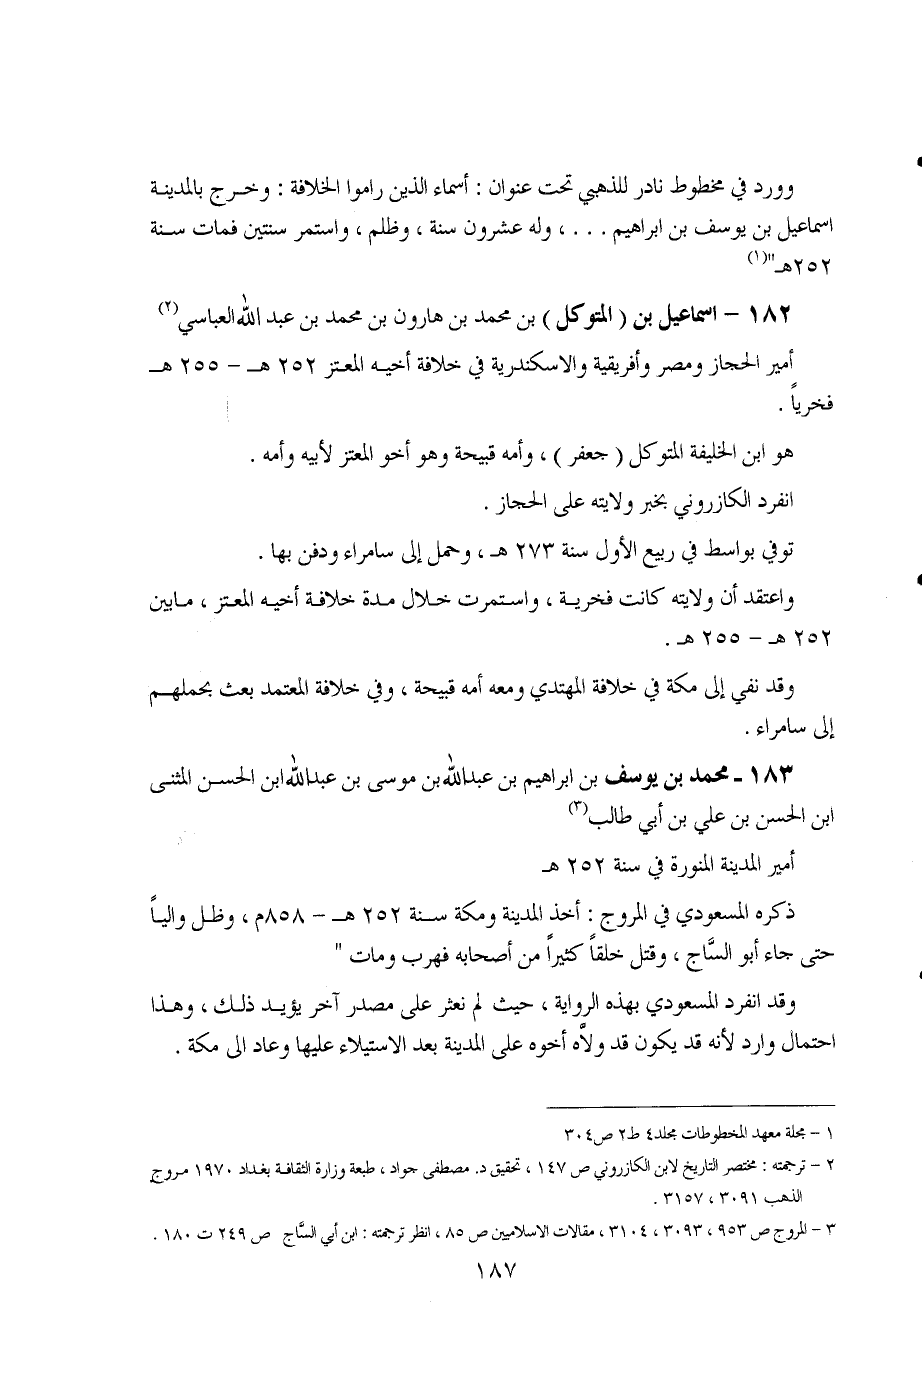 وورد في مخطوط نادر للذهبي تحت عنوان : أسماء الذين راموا الخلافة : وخرج بالمدينة
اسماعيل بن يوسف بن ابراهيم . . . ، وله عشرون سنة ، وظلم ، واستمر سنتين فمات سنة
٢٥٢هـ"(١)
١٨٢ – اسماعيل بن ( المتوكل ) بن محمد بن هارون بن محمد بن عبد الله العباسي(٢)
أمير الحجاز ومصر وأفريقية والاسكندرية في خلافة أخيه المعتز ٢٥٢ هـ – ٢٥٥ هـ
فخرياً .
هو ابن الخليفة المتوكل ( جعفر ) ، وأمه قبيحة وهو أخو المعتز لأبيه وأمه .
انفرد الكازروني بخبر ولايته على الحجاز .
توفي بواسط في ربيع الأول سنة ٢٧٣ هـ ، وحمل إلى سامراء ودفن بها .
واعتقد أن ولايته كانت فخرية ، واستمرت خلال مدة خلافة أخيه المعتز ، مابين
٢٥٢ هـ – ٢٥٥ هـ .
وقد نفي إلى مكة في خلافة المهتدي ومعه أمه قبيحة ، وفي خلافة المعتمد بعث بحملهم
إلى سامراء .
١٨٣ ـ محمد بن يوسف بن ابراهيم بن عبدالله بن موسى بن عبدالله ابن الحسن المثنى
ابن الحسن بن علي بن أبي طالب(٣)
أمير المدينة المنورة في سنة ٢٥٢ هـ
ذكره المسعودي في المروج : أخذ المدينة ومكة سنة ٢٥٢ هـ – ٨٥٨م ، وظل والياً
حتى جاء أبو السَّاج ، وقتل خلقاً كثيراً من أصحابه فهرب ومات "
وقد انفرد المسعودي بهذه الرواية ، حيث لم نعثر على مصدر آخر يؤيد ذلك ، وهذا
احتمال وارد لأنه قد يكون قد ولاَّه أخوه على المدينة بعد الاستيلاء عليها وعاد الى مكة .
١ – مجلة معهد المخطوطات مجلد٤ ط٢ ص٣٠٤
٢ – ترجمته : مختصر التاريخ لابن الكازروني ص ١٤٧ ، تحقيق د. مصطفى جواد ، طبعة وزارة الثقافة بغداد ١٩٧٠ مروج
الذهب ٣٠٩١ ، ٣١٥٧ .
٣ – المروج ص ٩٥٣ ، ٣٠٩٣ ، ٣١٠٤ ، مقالات الاسلاميين ص ٨٥ ، انظر ترجمته : ابن أبي السَّاج ص ٢٤٩ ت ١٨٠ .
١٨٧